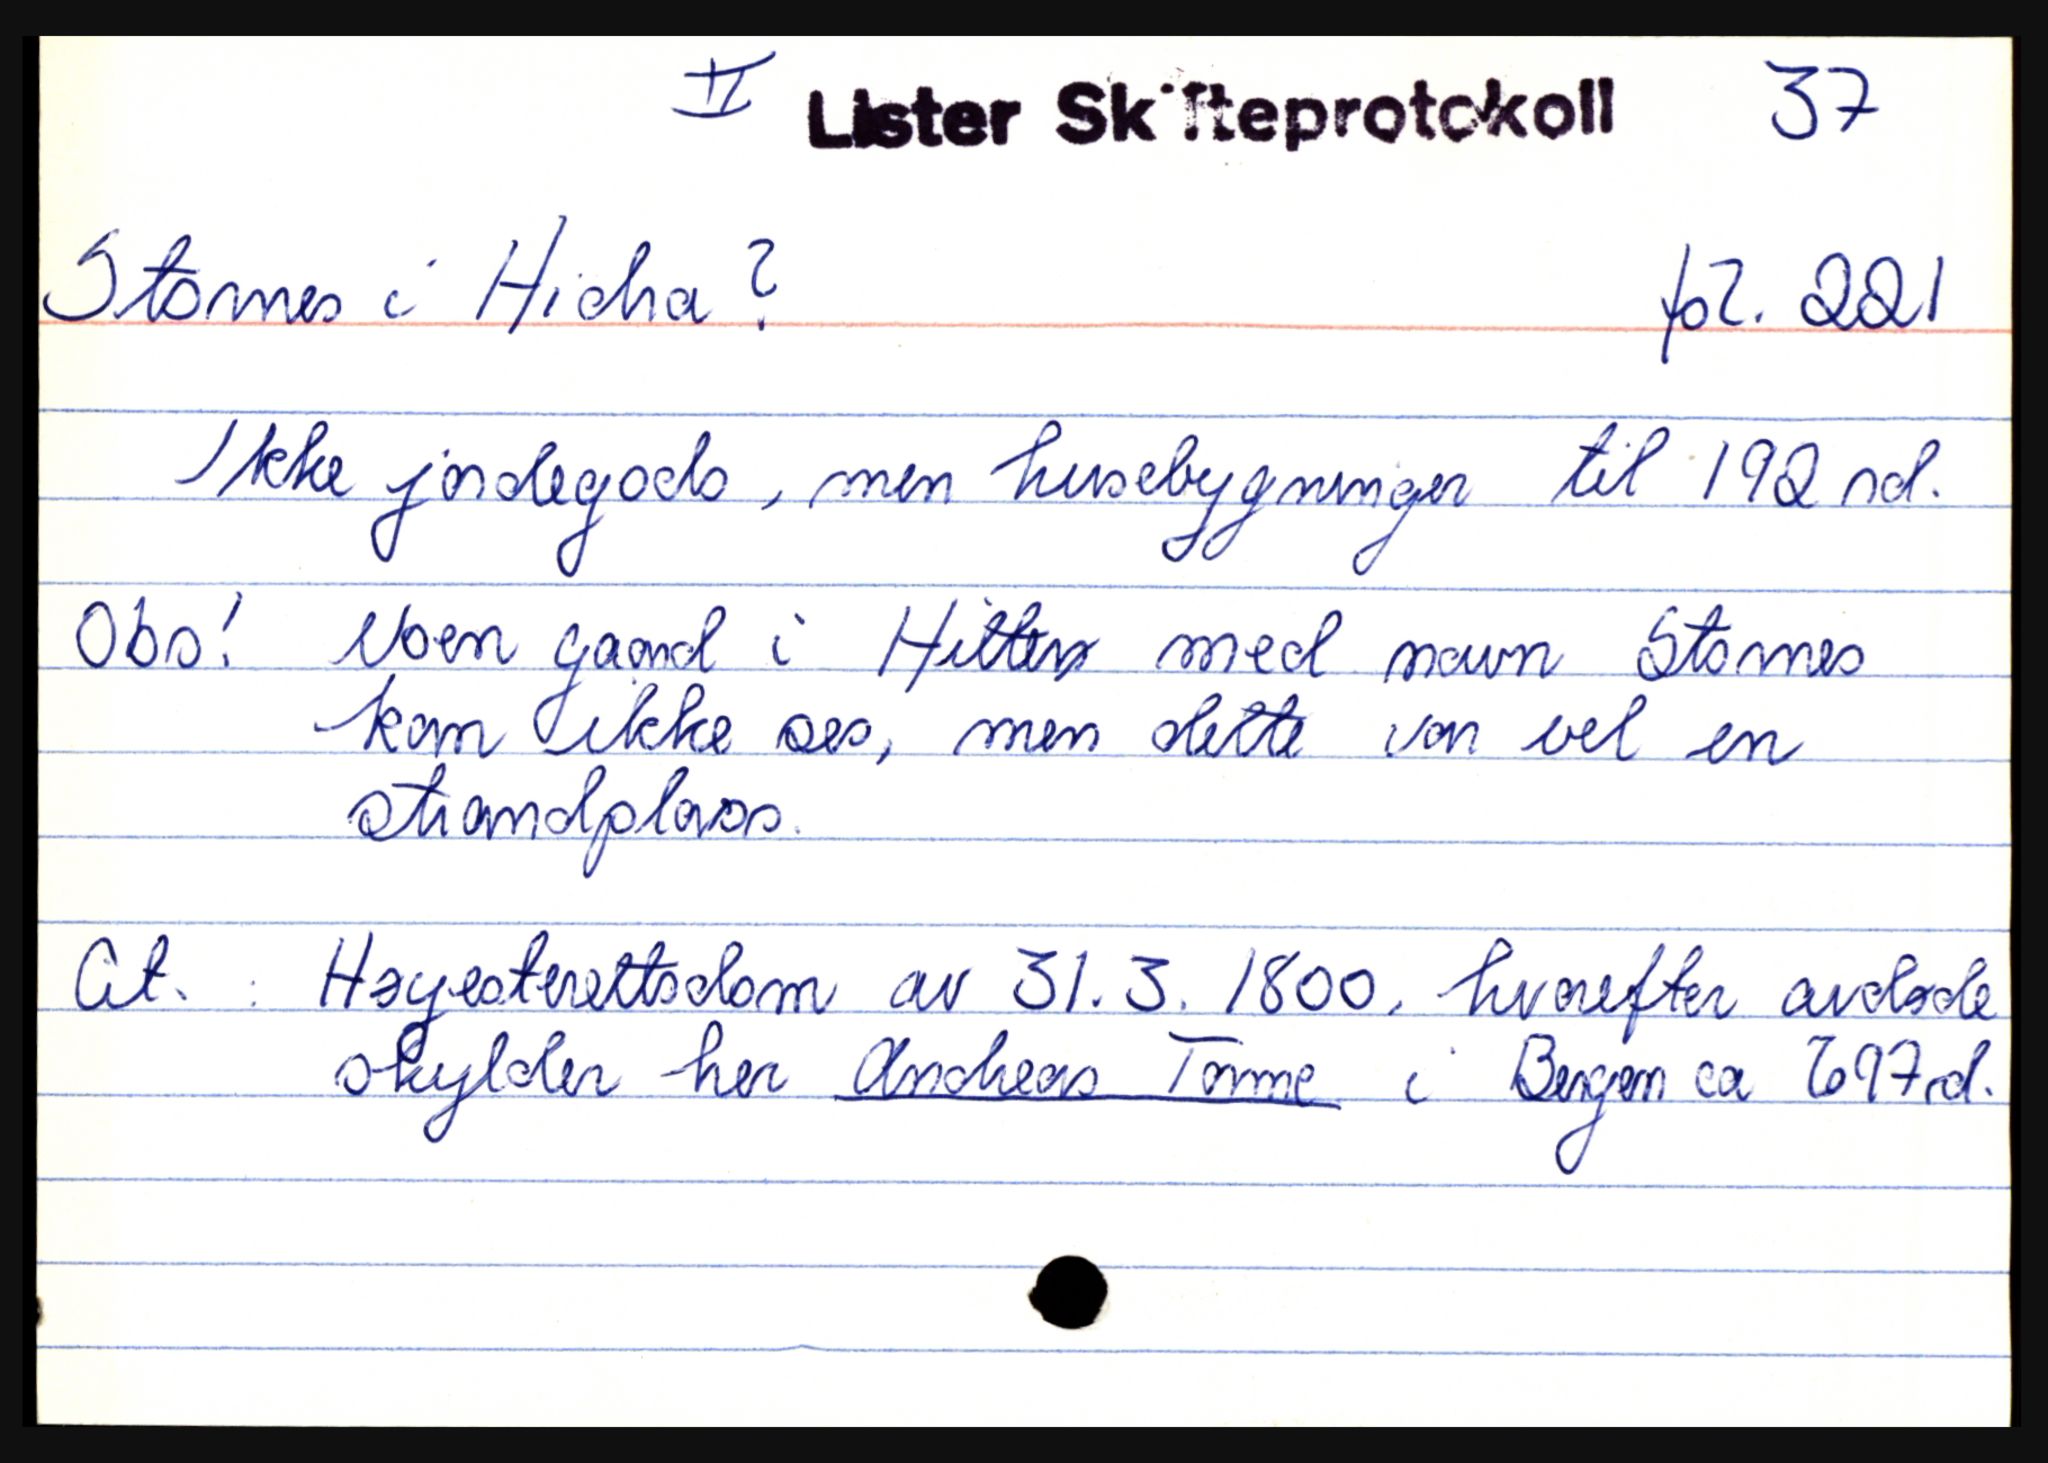 II Lister Skifteprotokoll 37
Stornes i Hidra? fol. 221
Ikke jordegods, men husebygninger til 192 rd.
Obs! Noen gaard i Hitterø med navn Stornes
kan ikke ses, men dette var vel en
strandplass.
Cit. : Høyesterettsdom av 31.3.1800, hvorefter avdøde
skylder her Andreas Tomme i Bergen ca 697 rd.